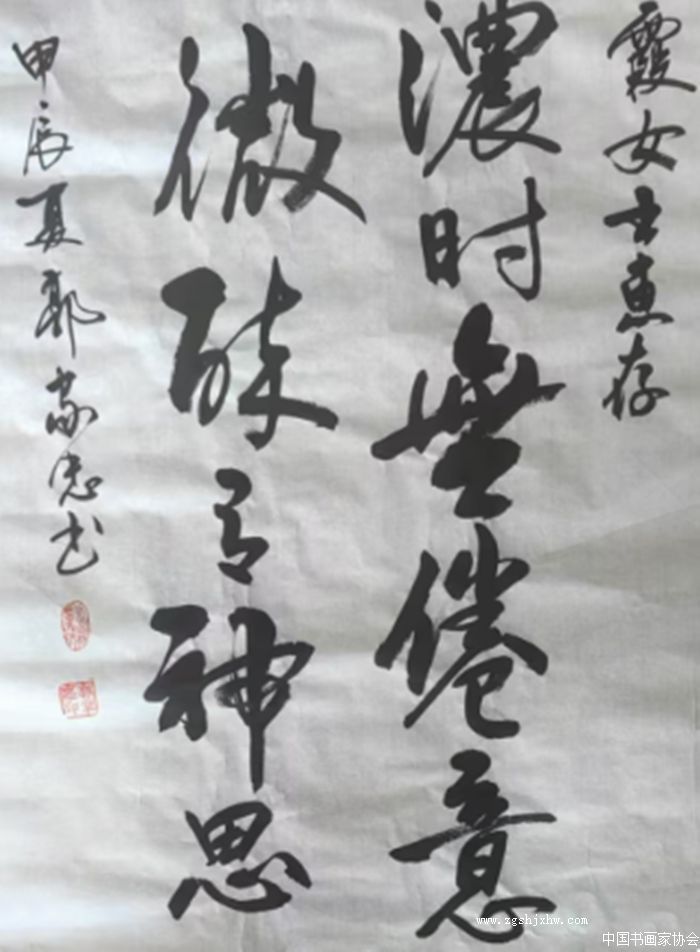 霞女士惠存
濃时無倦意
微醉有神思
甲辰夏郭家忠书
www.zgshjxhw.com
中国书画家协会